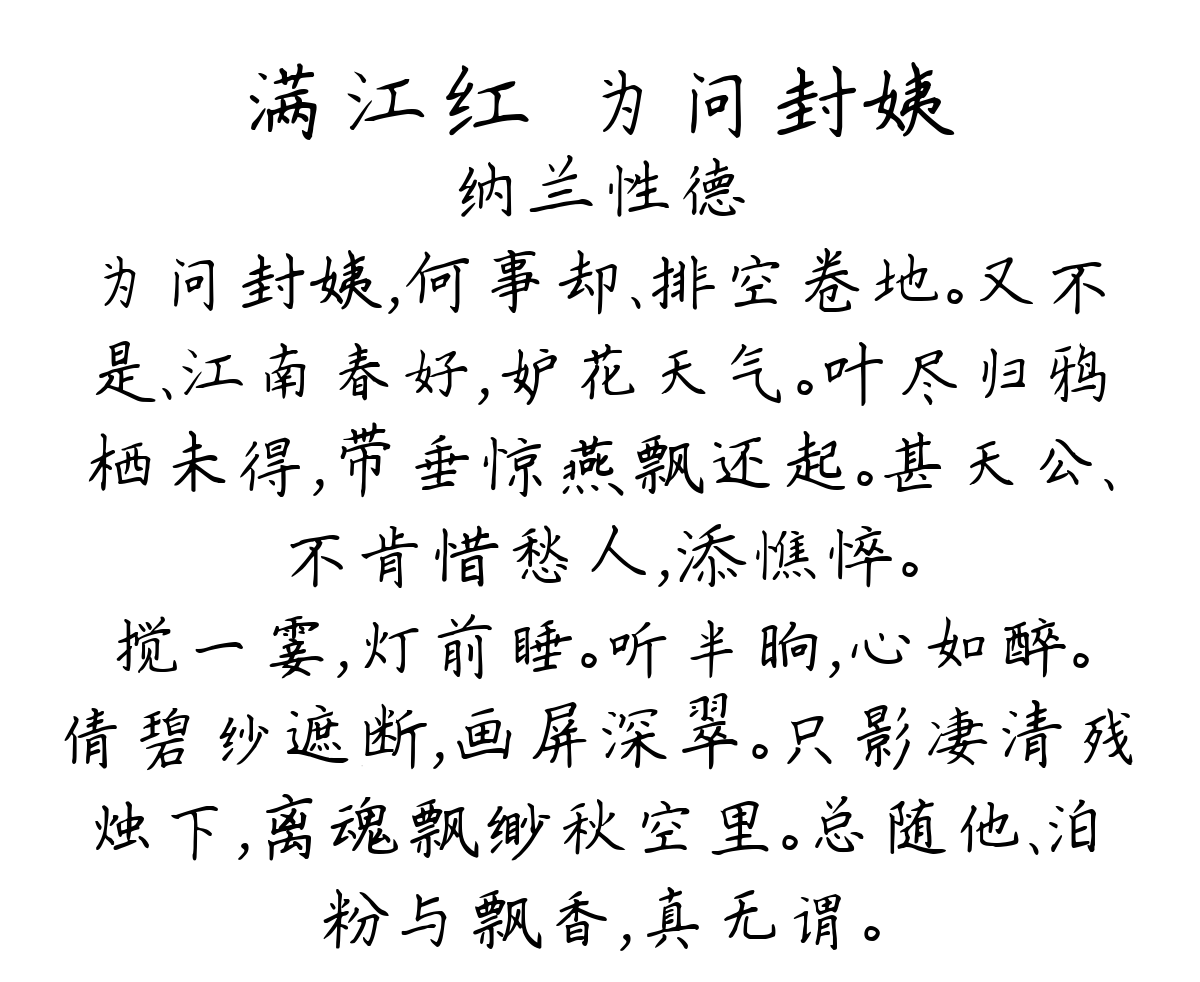 满江红 为问封姨
纳兰性德
为问封姨,何事却、排空卷地。又不
是、江南春好,妒花天气。叶尽归鸦
栖未得,带垂惊燕飘还起。甚天公、
不肯惜愁人,添憔悴。
搅一霎,灯前睡。听半晌,心如醉。
倩碧纱遮断,画屏深翠。只影凄清残
烛下,离魂飘缈秋空里。总随他、泊
粉与飘香,真无谓。